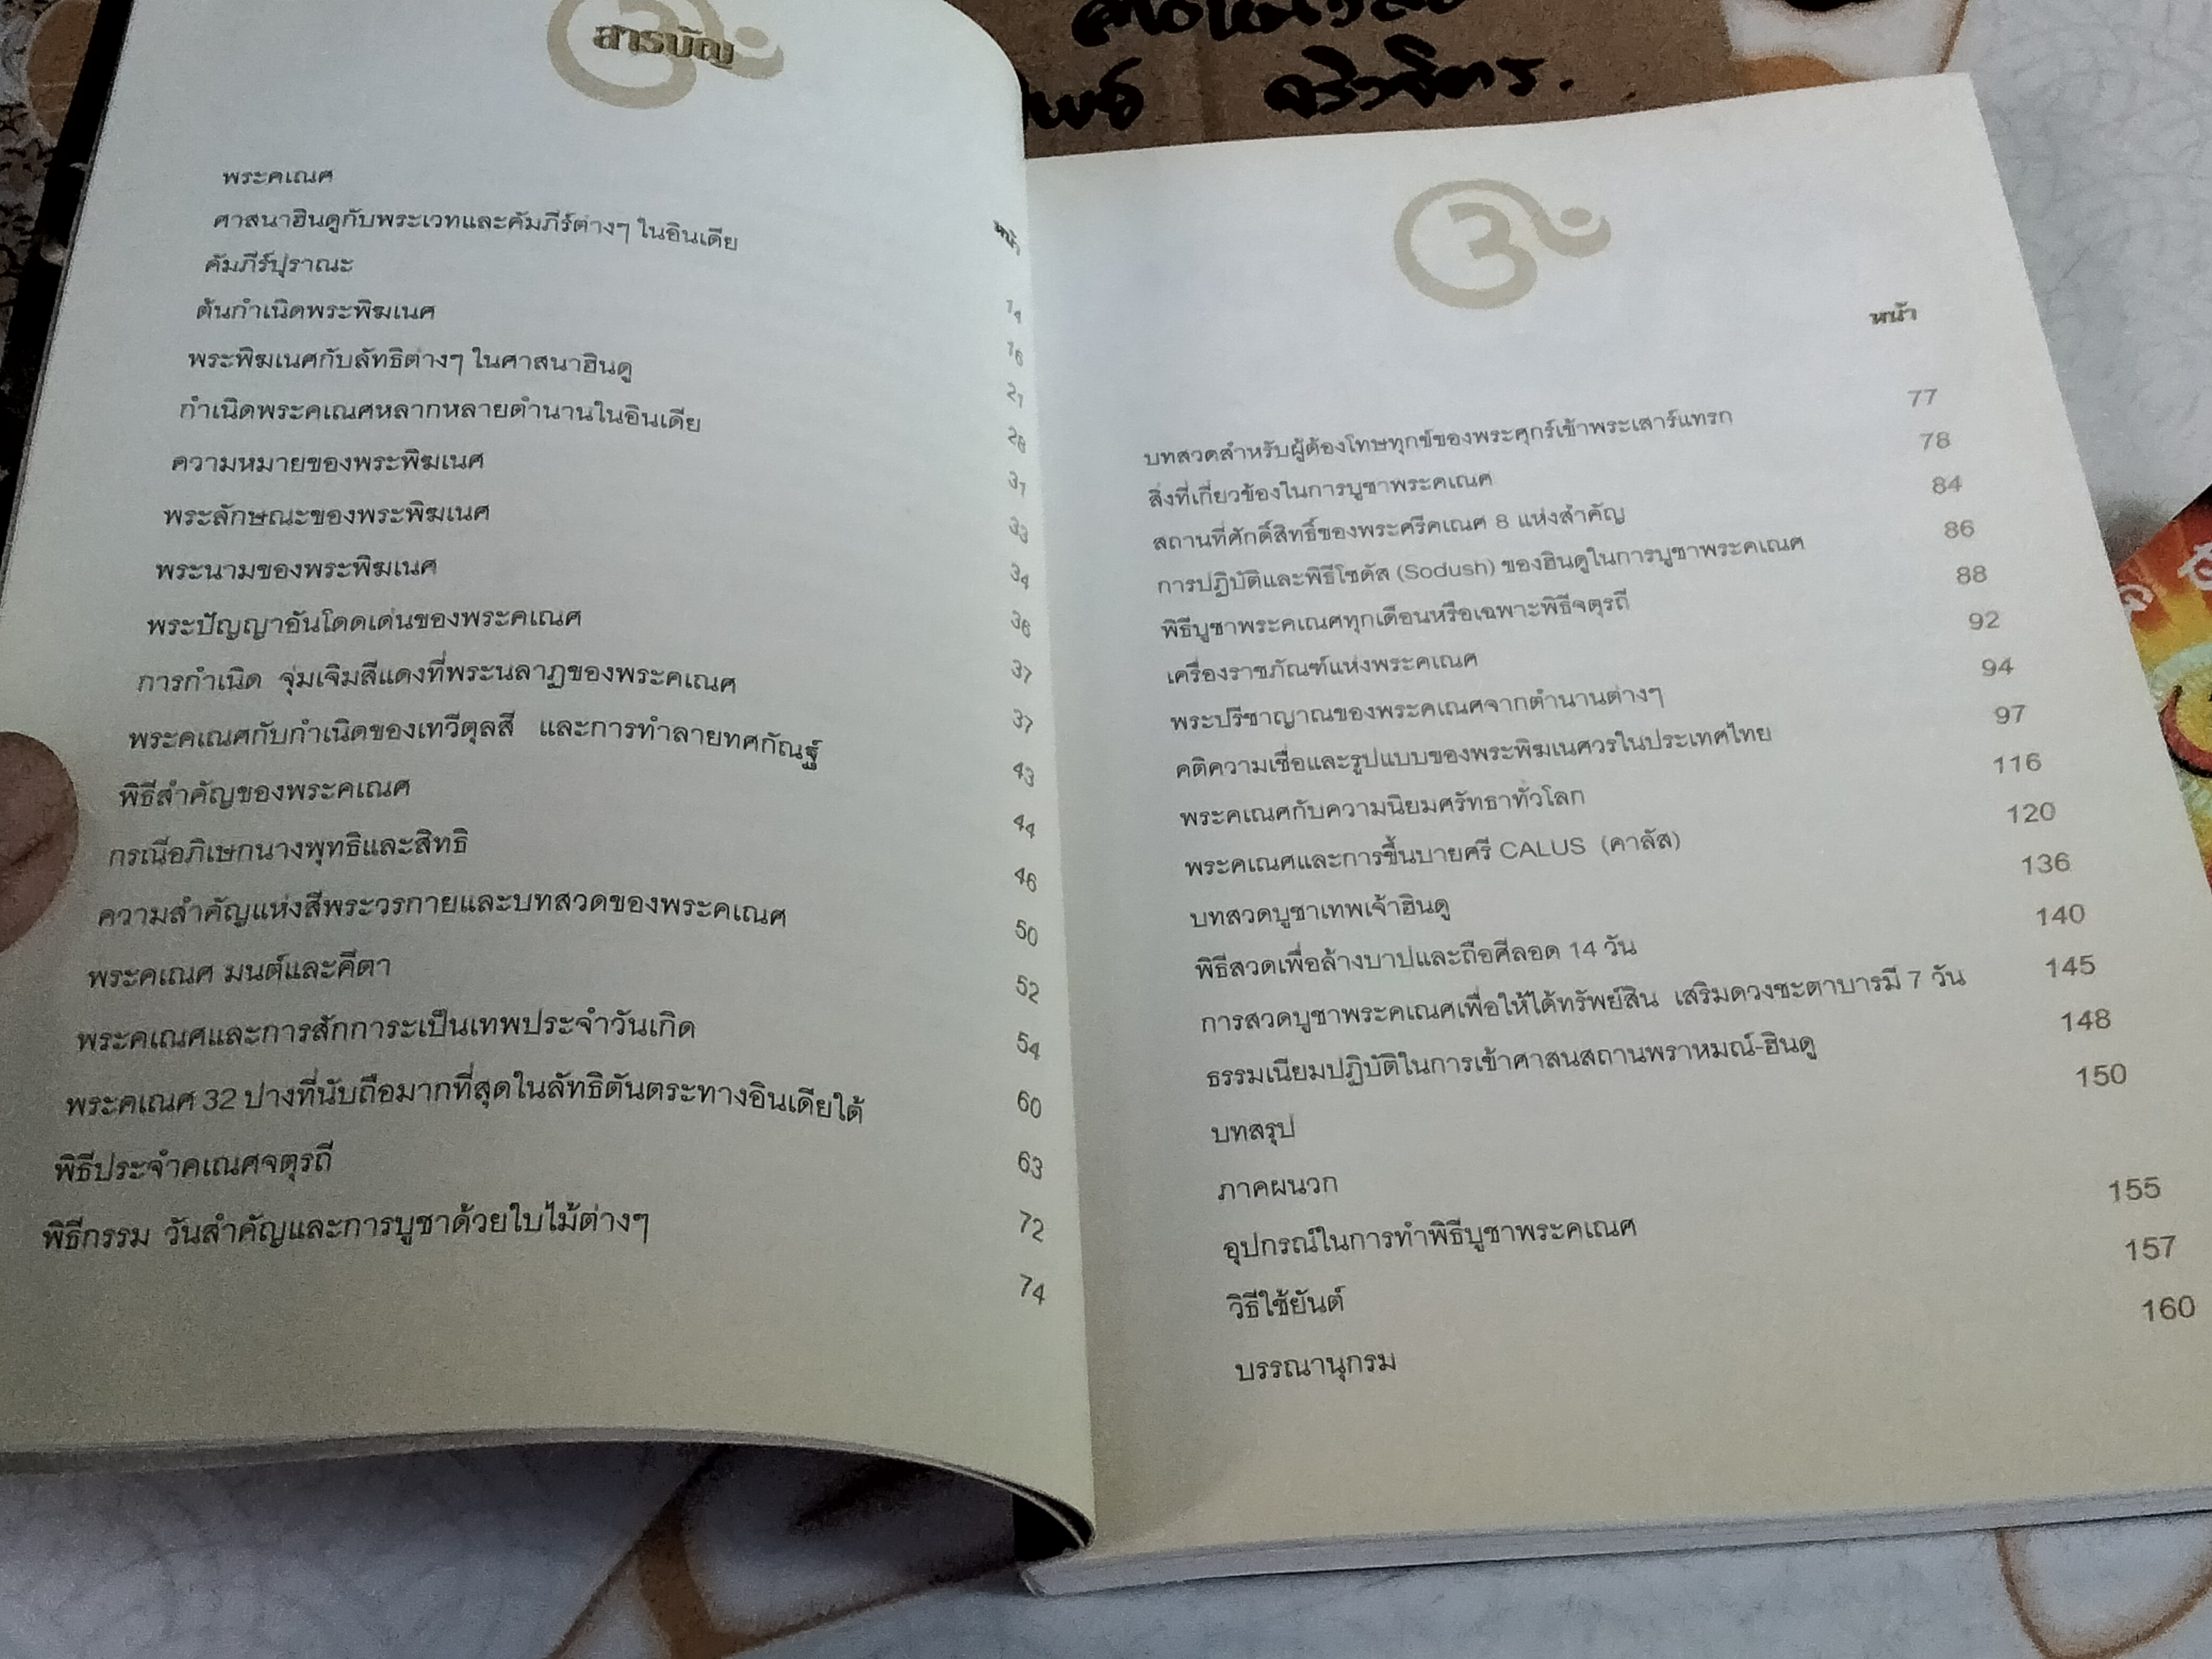 สารบัญ
หน้า
พระคเณศ 14
ศาสนาฮินดูกับพระเวทและคัมภีร์ต่างๆ ในอินเดีย 16
คัมภีร์ปุราณะ 21
ต้นกำเนิดพระพิฆเนศ 28
พระพิฆเนศกับลัทธิต่างๆ ในศาสนาฮินดู 31
กำเนิดพระคเณศหลากหลายตำนานในอินเดีย 33
ความหมายของพระพิฆเนศ 34
พระลักษณะของพระพิฆเนศ 36
พระนามของพระพิฆเนศ 37
พระปัญญาอันโดดเด่นของพระคเณศ 37
การกำเนิด จุ่มเจิมสีแดงที่พระนลาฏของพระคเณศ 43
พระคเณศกับกำเนิดของเทวีตุลสี และการทำลายทศกัณฐ์ 44
พิธีสำคัญของพระคเณศ 46
กรณีอภิเษกนางพุทธิและสิทธิ 50
ความสำคัญแห่งสีพระวรกายและบทสวดของพระคเณศ 52
พระคเณศ มนต์และคีตา 54
พระคเณศและการสักการะเป็นเทพประจำวันเกิด 60
พระคเณศ 32 ปางที่นับถือมากที่สุดในลัทธิตันตระทางอินเดียใต้ 63
พิธีประจำคเณศจตุรถี 72
พิธีกรรม วันสำคัญและการบูชาด้วยใบไม้ต่างๆ 74
หน้า
บทสวดสำหรับผู้ต้องโทษทุกข์ของพระศุกร์เข้าพระเสาร์แทรก 77
สิ่งที่เกี่ยวข้องในการบูชาพระคเณศ 78
สถานที่ศักดิ์สิทธิ์ของพระศรีคเณศ 8 แห่งสำคัญ 84
การปฏิบัติและพิธีโซดัส (Sodush) ของฮินดูในการบูชาพระคเณศ 86
พิธีบูชาพระคเณศทุกเดือนหรือเฉพาะพิธีจตุรถี 88
เครื่องราชภัณฑ์แห่งพระคเณศ 92
พระปรีชาญาณของพระคเณศจากตำนานต่างๆ 94
คติความเชื่อและรูปแบบของพระพิฆเนศวรในประเทศไทย 97
พระคเณศกับความนิยมศรัทธาทั่วโลก 116
พระคเณศและการขึ้นบายศรี CALUS (คาลัส) 120
บทสวดบูชาเทพเจ้าฮินดู 136
พิธีสวดเพื่อล้างบาปและถือศีลอด 14 วัน 140
การสวดบูชาพระคเณศเพื่อให้ได้ทรัพย์สิน เสริมดวงชะตาบารมี 7 วัน 145
ธรรมเนียมปฏิบัติในการเข้าศาสนสถานพราหมณ์-ฮินดู 148
บทสรุป 150
ภาคผนวก
อุปกรณ์ในการทำพิธีบูชาพระคเณศ 155
วิธีใช้ยันต์ 157
บรรณานุกรม 160